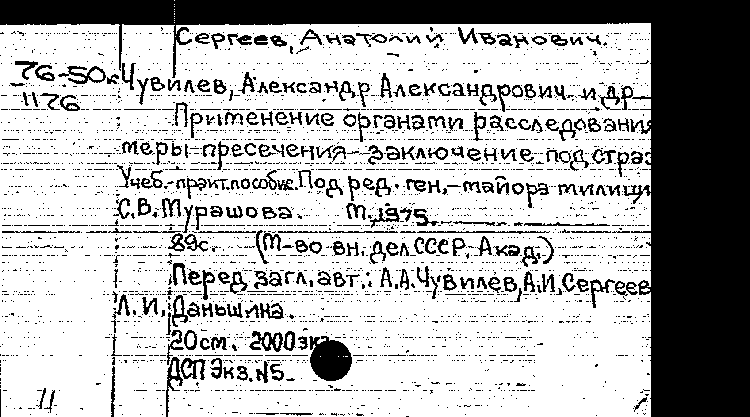 Сергеев, Анатолий Иванович.
76-50к Чувилев, Александр Александрович и др
1176
Применение органами расследования
меры пресечения - заключение под страз
Учеб.-практ.пособие. Под ред. ген.-майора милиции
С.В. Мурашова. М., 1975.
89с. (М-во вн. дел СССР. Акад.)
Перед загл. авт.: А.А.Чувилев, А.И.Сергеев
Л.И. Даньшина.
20см. 2000 экз
ДСП Экз.№5
11